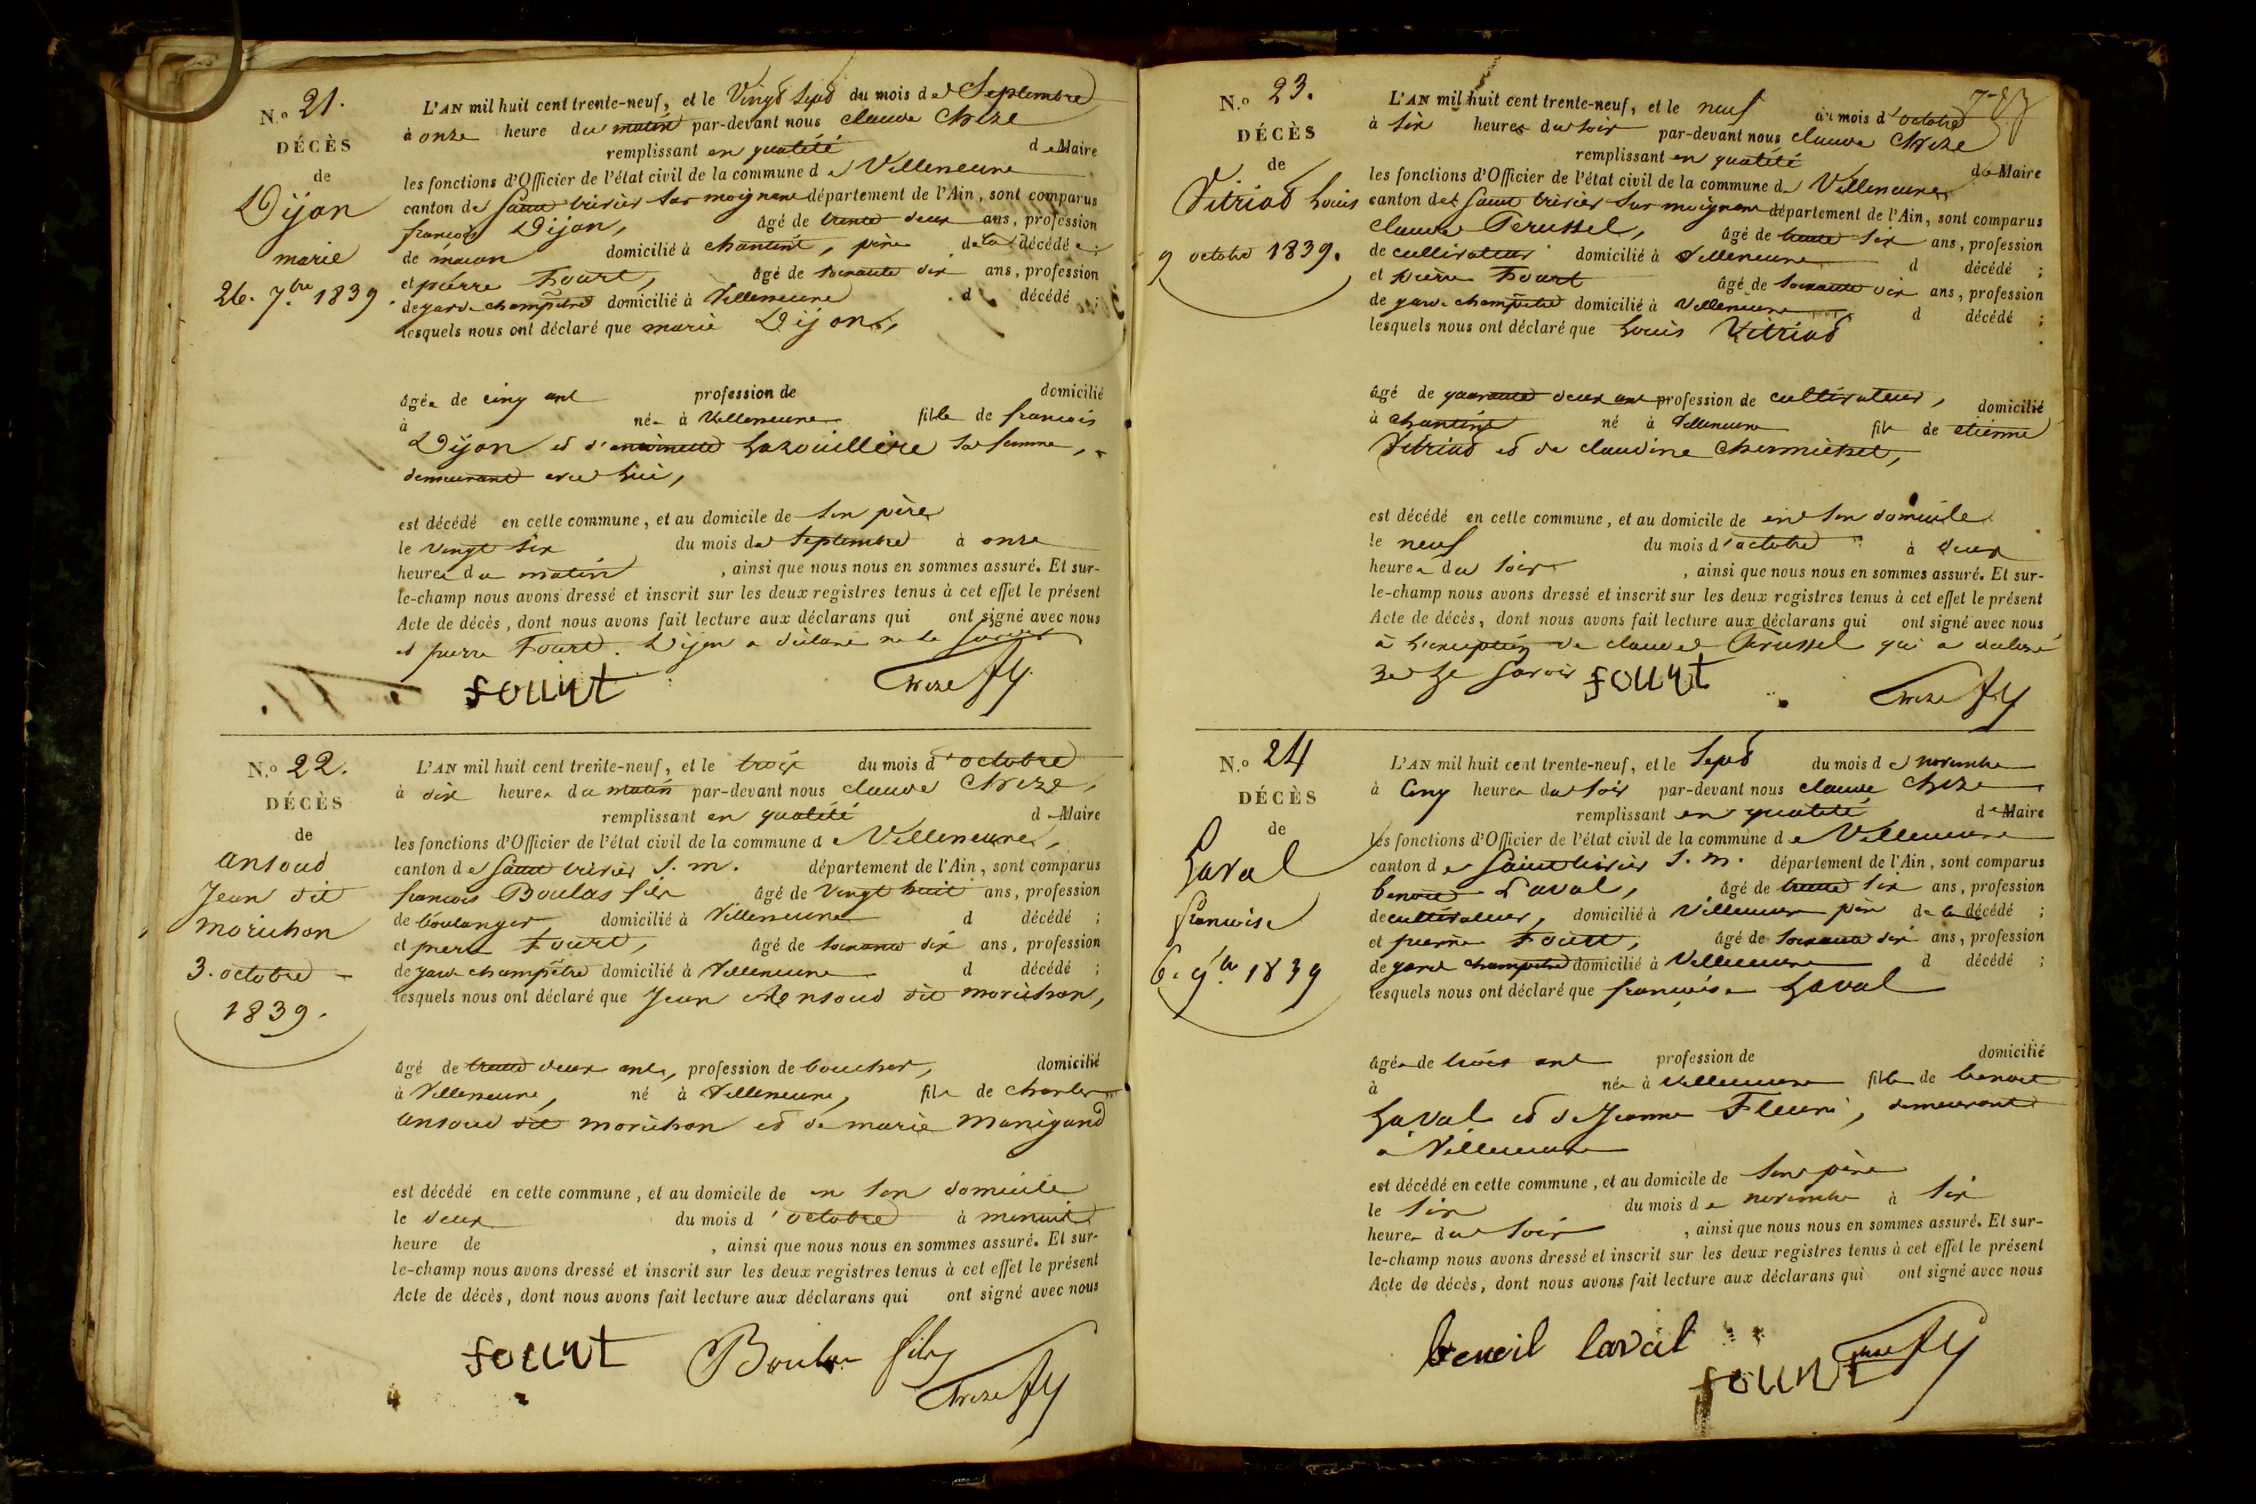 N.º 21.
DÉCÈS
de
Dijon
marie
26. 7.bre 1839
L'AN mil huit cent trente-neuf, et le Vingt Sept du mois de Septembre
à onze heure du matin par-devant nous claude Chize
remplissant en qualité de Maire
les fonctions d'Officier de l'état civil de la commune de Villeneuve
canton de Saint trivier Sur moignans département de l'Ain, sont comparus
françois Dijon, âgé de trente deux ans, profession
de maçon domicilié à chantins, père de la décédée ;
et pierre Fourt, âgé de soixante dix ans, profession
de garde champêtre domicilié à Villeneuve d décédé ;
lesquels nous ont déclaré que marie Dijon,
âgée de cinq ans profession de domicilié
à née à Villeneuve fille de françois
Dijon et d'antoinette Lazouillère Sa femme,
demeurant avec lui,
est décédé en cette commune, et au domicile de Son père
le vingt Six du mois de Septembre à onze
heures du matin , ainsi que nous nous en sommes assuré. Et sur-
le-champ nous avons dressé et inscrit sur les deux registres tenus à cet effet le présent
Acte de décès, dont nous avons fait lecture aux déclarans qui ont signé avec nous
et pierre Fourt. Dijon a déclaré ne le savoir
fourt Chize
N.º 22.
DÉCÈS
de
ansoud
Jean dit
morichon
3. octobre
1839.
L'AN mil huit cent trente-neuf, et le trois du mois d'octobre
à dix heures du matin par-devant nous claude Chize,
remplissant en qualité de Maire
les fonctions d'Officier de l'état civil de la commune de Villeneuve,
canton de Saint trivier S. m. département de l'Ain, sont comparus
françois Boulas fils âgé de vingt huit ans, profession
de boulanger domicilié à Villeneuve d décédé ;
et pierre Fourt, âgé de soixante dix ans, profession
de garde champêtre domicilié à Villeneuve d décédé ;
lesquels nous ont déclaré que Jean ansoud dit morichon,
âgé de trente deux ans, profession de boucher, domicilié
à Villeneuve, né à Villeneuve, fils de charles
ansoud dit morichon et de marie Manigand
est décédé en cette commune, et au domicile de en Son domicile
le deux du mois d'octobre à minuit
heure de , ainsi que nous nous en sommes assuré. Et sur-
le-champ nous avons dressé et inscrit sur les deux registres tenus à cet effet le présent
Acte de décès, dont nous avons fait lecture aux déclarans qui ont signé avec nous
fourt Boulas fils
Chize
N.º 23.
DÉCÈS
de
Vitriat Louis
9 octobre 1839.
L'AN mil huit cent trente-neuf, et le neuf du mois d'octobre
à Six heures du soir par-devant nous claude Chize
remplissant en qualité de Maire
les fonctions d'Officier de l'état civil de la commune de Villeneuve
canton de Saint trivier Sur moignans département de l'Ain, sont comparus
claude Perussel, âgé de trente Six ans, profession
de cultivateur domicilié à Villeneuve d décédé ;
et pierre Fourt âgé de soixante dix ans, profession
de garde champêtre domicilié à Villeneuve d décédé ;
lesquels nous ont déclaré que Louis Vitriat
âgé de quarante deux ans profession de cultivateur, domicilié
à chantins né à Villeneuve fils de etienne
Vitriat et de claudine Chermichet,
est décédé en cette commune, et au domicile de en Son domicile
le neuf du mois d'octobre à deux
heures du soir , ainsi que nous nous en sommes assuré. Et sur-
le-champ nous avons dressé et inscrit sur les deux registres tenus à cet effet le présent
Acte de décès, dont nous avons fait lecture aux déclarans qui ont signé avec nous
à L'exception de claude Perussel qui a déclaré
ne le savoir fourt Chize
N.º 24
DÉCÈS
de
Laval
françoise
6. 9.bre 1839
L'AN mil huit cent trente-neuf, et le Sept du mois de novembre
à Cinq heures du soir par-devant nous claude Chize
remplissant en qualité de Maire
les fonctions d'Officier de l'état civil de la commune de Villeneuve
canton de Saint trivier S. m. département de l'Ain, sont comparus
benoit Laval, âgé de trente Six ans, profession
de cultivateur, domicilié à Villeneuve père de la décédé ;
et pierre Fourt, âgé de soixante dix ans, profession
de garde champêtre domicilié à Villeneuve d décédé ;
lesquels nous ont déclaré que françoise Laval
âgée de trois ans profession de domicilié
à née à Villeneuve fille de benoit
Laval et de Jeanne Fleuri, demeurant
à Villeneuve
est décédé en cette commune, et au domicile de Son père
le Six du mois de novembre à Six
heures du soir , ainsi que nous nous en sommes assuré. Et sur-
le-champ nous avons dressé et inscrit sur les deux registres tenus à cet effet le présent
Acte de décès, dont nous avons fait lecture aux déclarans qui ont signé avec nous
benoit laval Chize
fourt